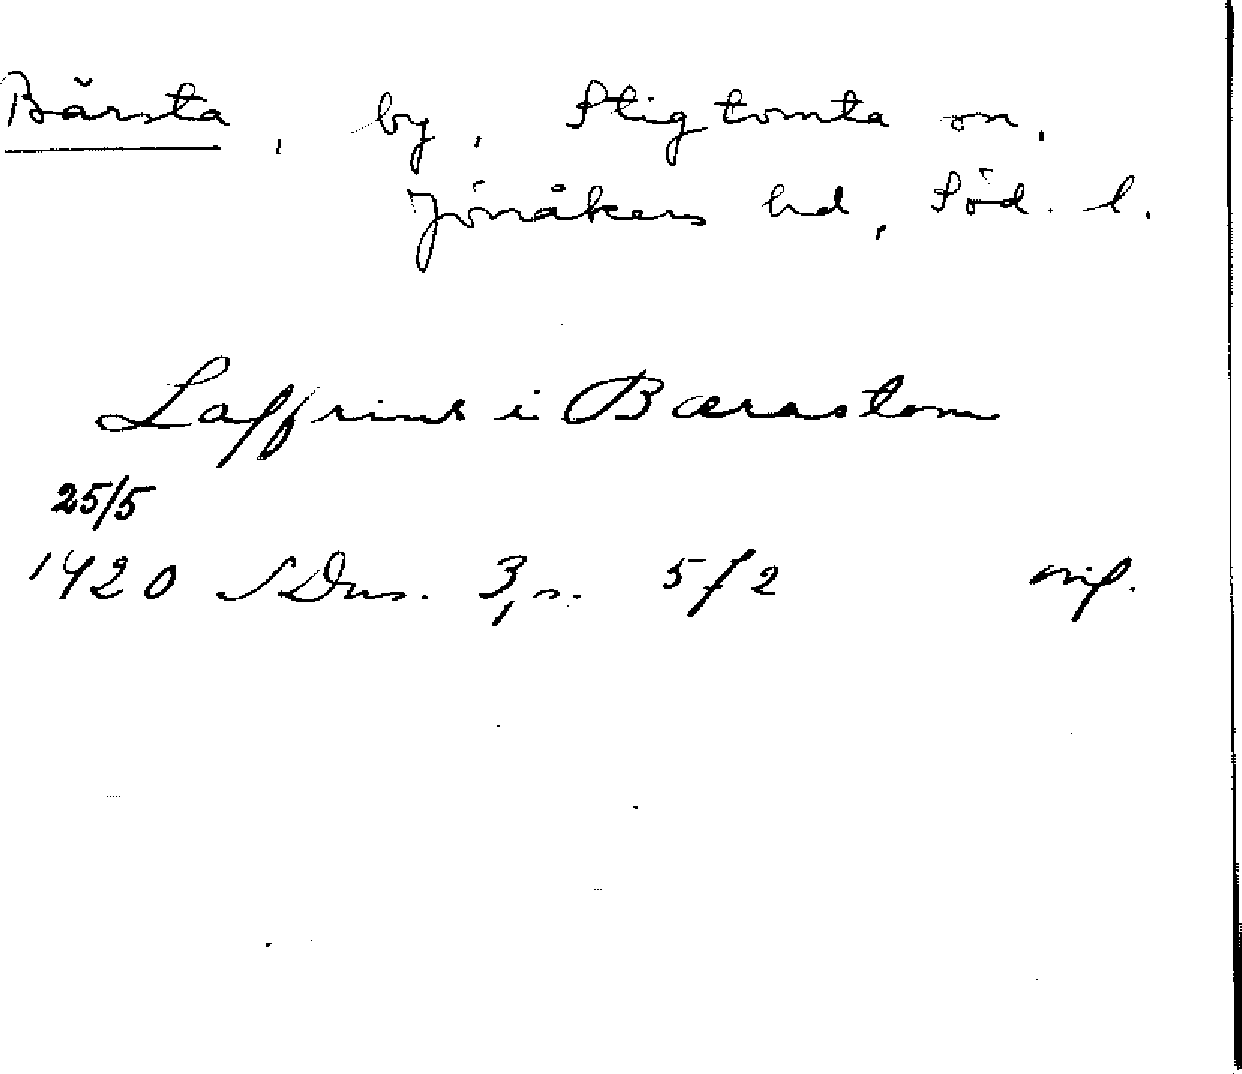 Bärsta, by, Stigtomta sn.
Jönåkers hd, Söd. l.
Laffrins i Bærastom
25/5
1420 SDns. 3, s. 572 orig.